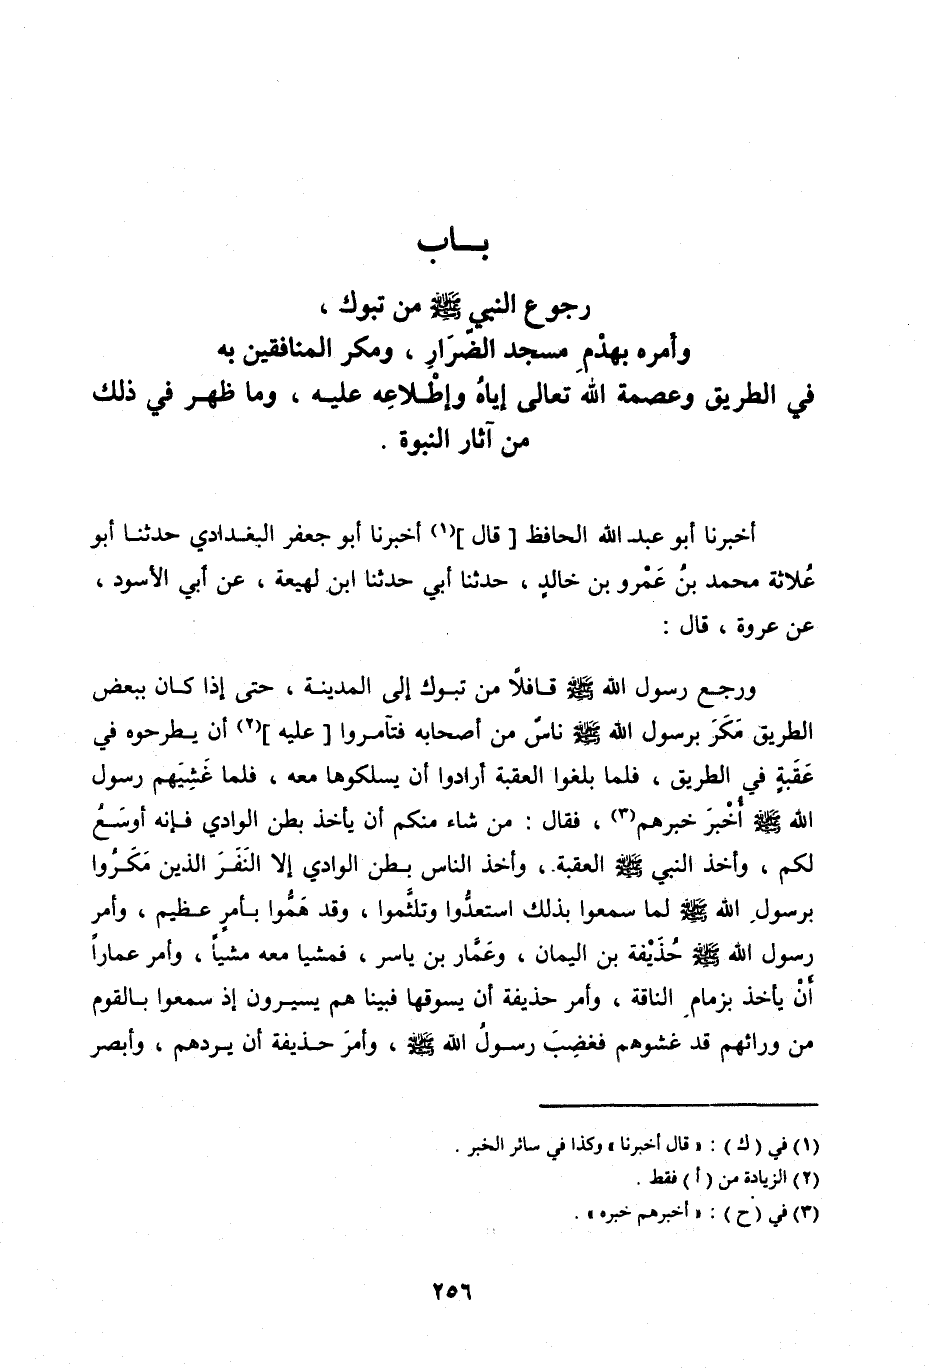 بـــاب
رجوع النبي ﷺ من تبوك ،
وأمره بهدْمِ مسجد الضِّرَارِ ، ومكر المنافقين به
في الطريق وعصمة الله تعالى إياهُ وإطْـلاعِه عليـه ، وما ظهـر في ذلك
من آثار النبوة .
أخبرنا أبو عبـد الله الحافظ [ قال ](١) أخبرنا أبو جعفر البغـدادي حدثنـا أبو
عُلاثة محمد بنُ عَمْرو بن خالدٍ ، حدثنا أبي حدثنا ابن لهيعة ، عن أبي الأسود ،
عن عروة ، قال :
ورجـع رسول الله ﷺ قـافلًا من تبوك إلى المدينـة ، حتى إذا كـان ببعض
الطريق مَكَرَ برسول الله ﷺ ناسٌ من أصحابه فتآمـروا [ عليه ](٢) أن يـطرحوه في
عَقَبةٍ في الطريق ، فلما بلغوا العقبة أرادوا أن يسلكوها معه ، فلما غَشِيَهم رسول
الله ﷺ أُخْبِرَ خبرهم(٣) ، فقال : من شاء منكم أن يأخذ بطن الوادي فـإنه أوسَـعُ
لكم ، وأخذ النبي ﷺ العقبة ، وأخذ الناس بـطن الوادي إلا النَفَـرَ الذين مَكَـرُوا
برسول الله ﷺ لما سمعوا بذلك استعدُّوا وتلثَّموا ، وقد هَمُّوا بـأمرٍ عـظيم ، وأمر
رسول الله ﷺ حُذَيْفة بن اليمان ، وعَمَّار بن ياسر ، فمشيا معه مشياً ، وأمر عماراً
أنْ يأخذ بزمام الناقة ، وأمر حذيفة أن يسوقها فبينا هم يسيـرون إذ سمعوا بـالقوم
من ورائهم قد غشوهم فغضِبَ رسـولُ الله ﷺ ، وأمرَ حـذيفة أن يـردهم ، وأبصر
(١) في ( ك ) : « قال أخبرنا » وكذا في سائر الخبر .
(٢) الزيادة من ( أ ) فقط .
(٣) في ( ح ) : « أخبرهم خبره » .
٢٥٦